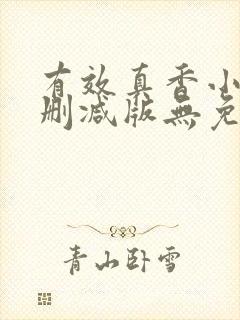 有效真香小
删减版無免
青山卧雪